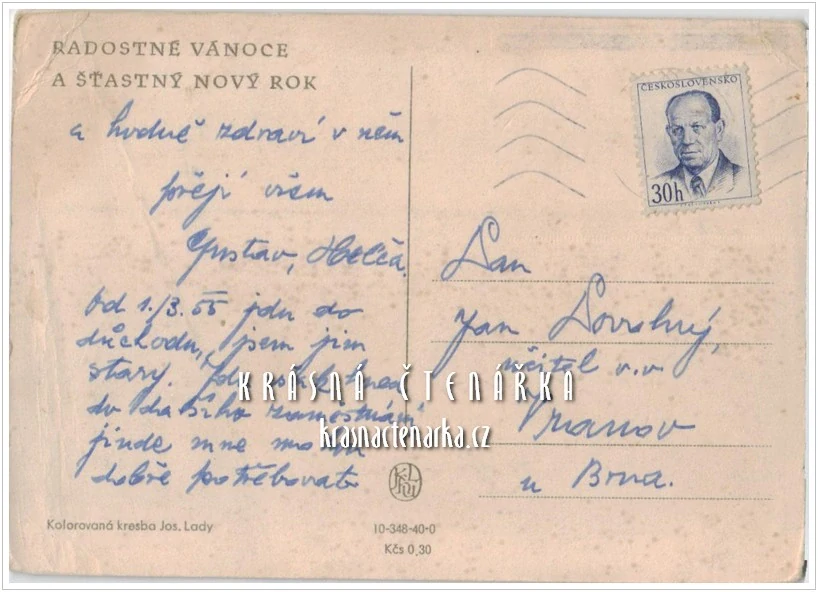 RADOSTNÉ VÁNOCE
A ŠŤASTNÝ NOVÝ ROK
a hodně zdraví v něm
přejí všem
Gustav,
Od 1./3. 55 jdu do
důchodu, jsem jim
starý.
do dalšího zaměstnání
jinde mne mohou
dobře potřebovat
Kolorovaná kresba Jos. Lady
10-348-40-0
Kčs 0,30
ČESKOSLOVENSKO
30h
Pan
Jan
učitel v.v.
Vranov
u Brna.
KRÁSNÁ ČTENÁŘKA
krasnactenarka.cz